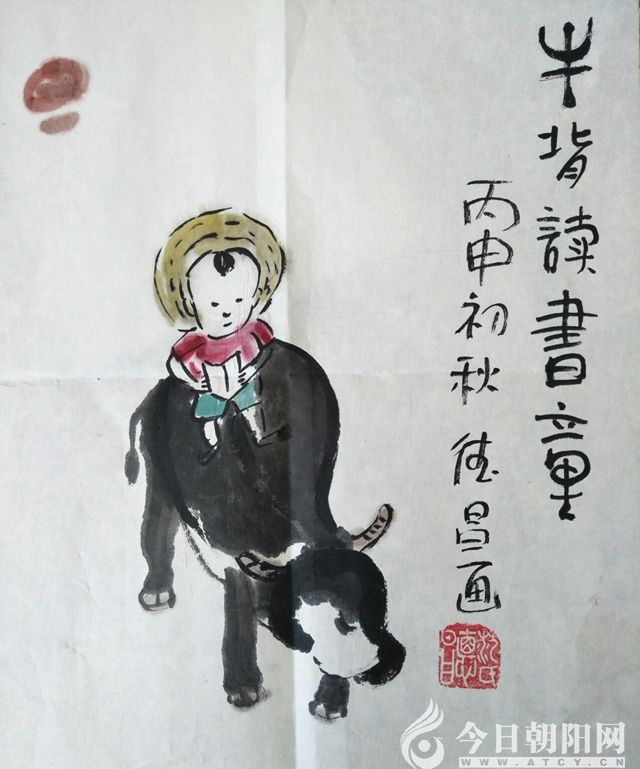 牛背讀書童
丙申初秋 德昌画
今日朝阳网
WWW.ATCY.CN